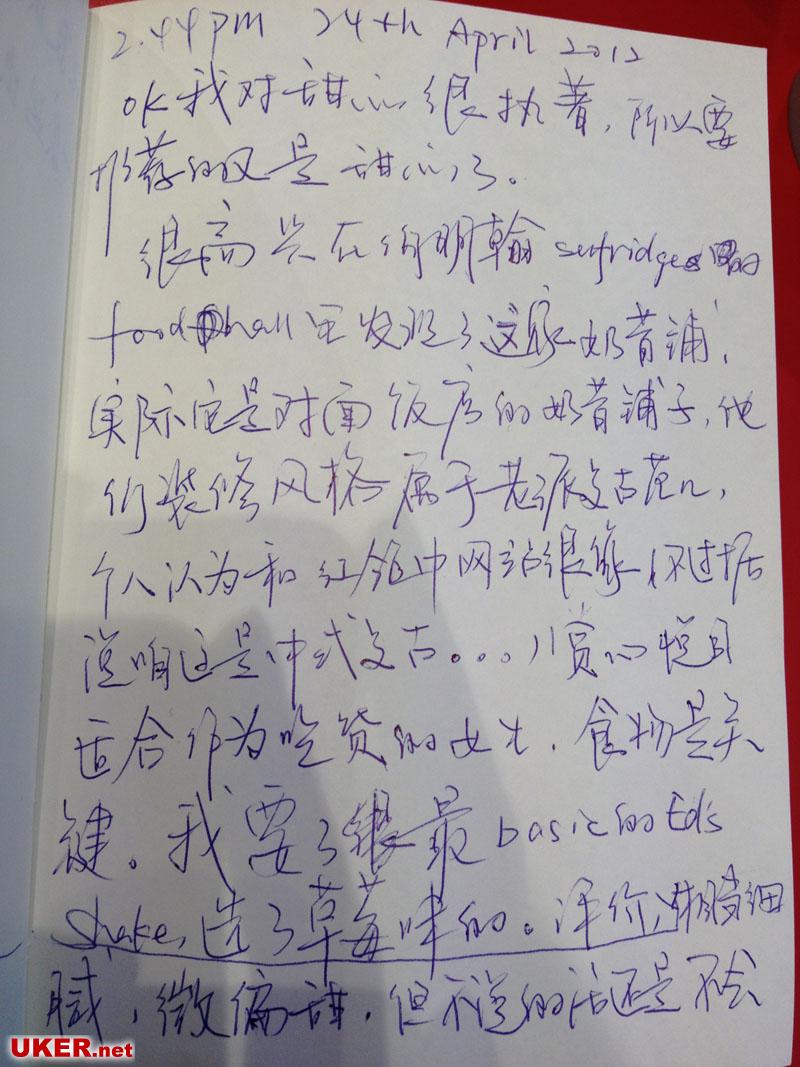 2.44pm 24th April 2012
OK我对甜心很执著，所以要
推荐的又是甜心了。
很高兴在伯明翰 selfridges的
food hall里发现了这家奶昔铺，
实际它是对面饭店的奶昔铺子，他
们装修风格属于老派复古范儿，
个人认为和红领巾网站很像（不过据
说咱这是中式复古。。。）赏心悦目
适合作为吃货的女生，食物是关
键。我要了最basic的Eds
shake，选了草莓味的。评价，细
腻，微偏甜，但的话还是不会
UKER.net